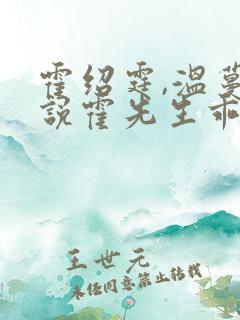 霍绍霆,温蔓
说霍先生乖
王世元
未经同意禁止转载